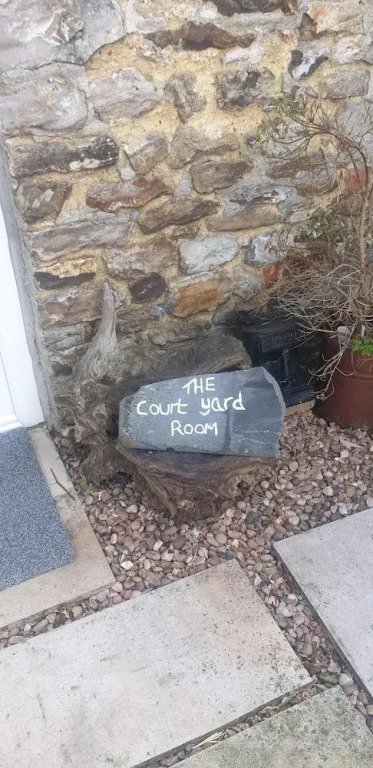 THE
Court yard
Room